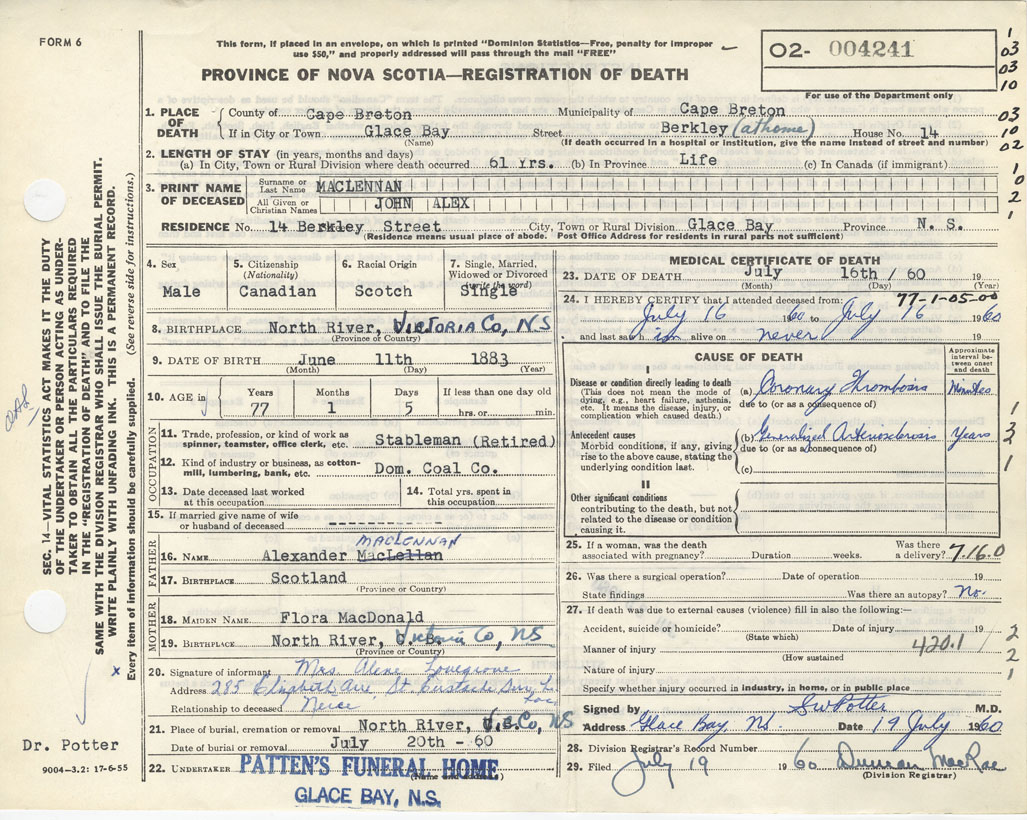 FORM 6
This form, if placed in an envelope, on which is printed "Dominion Statistics—Free, penalty for improper
use $50," and properly addressed will pass through the mail "FREE"
O2- 004241
For use of the Department only
PROVINCE OF NOVA SCOTIA—REGISTRATION OF DEATH
1
03
03
10
03
10
02
1
0
2
1
1. PLACE OF DEATH
County of Cape Breton Municipality of Cape Breton
If in City or Town Glace Bay Street Berkley (at home) House No. 14
(Name) (If death occurred in a hospital or institution, give the name instead of street and number)
2. LENGTH OF STAY (in years, months and days)
(a) In City, Town or Rural Division where death occurred 61 Yrs. (b) In Province Life (c) In Canada (if immigrant)
3. PRINT NAME OF DECEASED
Surname or Last Name MACLENNAN
All Given or Christian Names JOHN ALEX
RESIDENCE No. 14 Berkley Street City, Town or Rural Division Glace Bay Province N. S.
(Residence means usual place of abode. Post Office Address for residents in rural parts not sufficient)
4. Sex
Male
5. Citizenship
(Nationality)
Canadian
6. Racial Origin
Scotch
7. Single, Married,
Widowed or Divorced
(write the word)
Single
8. BIRTHPLACE North River, Victoria Co, NS
(Province or Country)
9. DATE OF BIRTH June 11th 1883
(Month) (Day) (Year)
10. AGE in
Years Months Days If less than one day old
77 1 5 hrs. or min.
OCCUPATION
11. Trade, profession, or kind of work as
spinner, teamster, office clerk, etc. Stableman (Retired)
12. Kind of industry or business, as cotton-
mill, lumbering, bank, etc. Dom. Coal Co.
13. Date deceased last worked
at this occupation
14. Total yrs. spent in
this occupation
15. If married give name of wife
or husband of deceased ------------
FATHER
MACLENNAN
16. NAME Alexander MacLellan
17. BIRTHPLACE Scotland
(Province or Country)
MOTHER
18. MAIDEN NAME Flora MacDonald
19. BIRTHPLACE North River, C. B. Victoria Co, NS
(Province or Country)
20. Signature of informant Mrs. Alene Lovegrove
Address 285 Elizabeth Ave St. Eustache
Relationship to deceased Neice
21. Place of burial, cremation or removal North River, Co, NS
Date of burial or removal July 20th - 60
22. UNDERTAKER PATTEN'S FUNERAL HOME
(Name and address)
GLACE BAY, N.S.
MEDICAL CERTIFICATE OF DEATH
23. DATE OF DEATH July 16th / 60 19
(Month) (Day) (Year)
77-1-05-00
24. I HEREBY CERTIFY that I attended deceased from:
July 16 1960 to July 16 1960
and last saw him alive on never 19
CAUSE OF DEATH
Approximate
interval be-
tween onset
and death
I
Disease or condition directly leading to death
(This does not mean the mode of
dying, e.g., heart failure, asthenia,
etc. It means the disease, injury, or
complication which caused death.)
(a) Coronary Thrombosis Minutes
due to (or as a consequence of)
Antecedent causes
Morbid conditions, if any, giving
rise to the above cause, stating the
underlying condition last.
(b) Generalized Arteriosclerosis Years
due to (or as a consequence of)
(c)
II
Other significant conditions
contributing to the death, but not
related to the disease or condition
causing it.
1
3
2
1
25. If a woman, was the death
associated with pregnancy? Duration weeks. Was there
a delivery? 7.16.0
26. Was there a surgical operation? Date of operation 19
State findings Was there an autopsy? No.
27. If death was due to external causes (violence) fill in also the following:—
Accident, suicide or homicide? Date of injury 19
(State which)
Manner of injury 420.1
(How sustained
Nature of injury
2
2
1
Specify whether injury occurred in industry, in home, or in public place
Signed by S W Potter M.D.
Address Glace Bay, NS Date 19 July 1960
28. Division Registrar's Record Number
29. Filed July 19 1960 Duncan MacRae
(Division Registrar)
SEC. 14—VITAL STATISTICS ACT MAKES IT THE DUTY
OF THE UNDERTAKER OR PERSON ACTING AS UNDER-
TAKER TO OBTAIN ALL THE PARTICULARS REQUIRED
IN THE "REGISTRATION OF DEATH" AND FILE THE
SAME WITH THE DIVISION REGISTRAR WHO SHALL ISSUE THE BURIAL PERMIT.
WRITE PLAINLY WITH UNFADING INK. THIS IS A PERMANENT RECORD.
Every item of information should be carefully supplied. (See reverse side for instructions.)
x
Dr. Potter
9004-3.2: 17-6-55